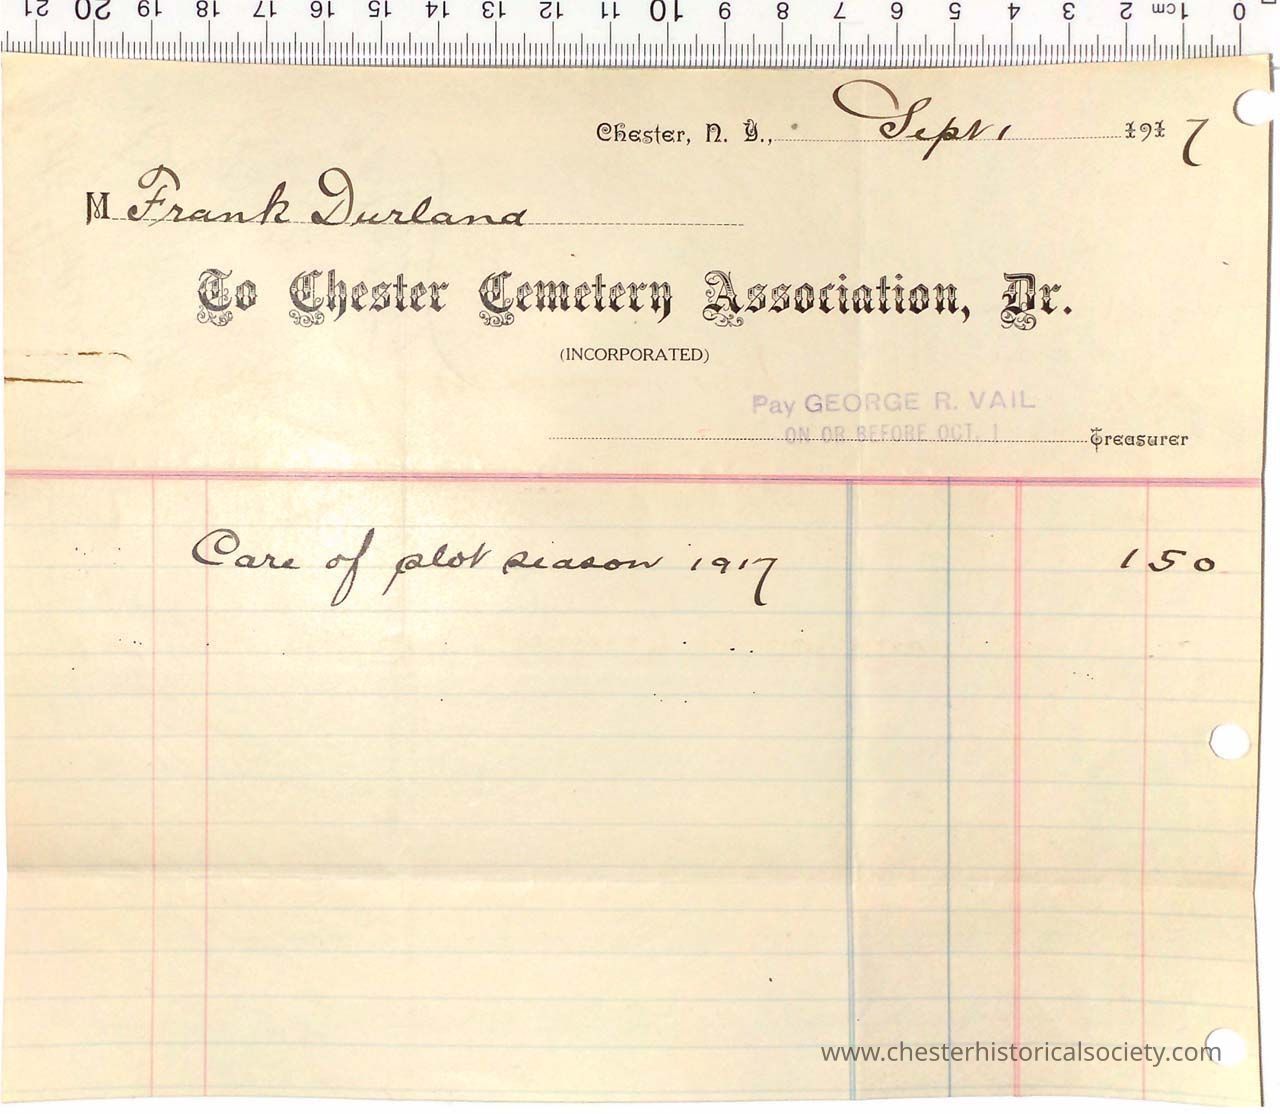 0 1cm 2 3 4 5 6 7 8 9 10 11 12 13 14 15 16 17 18 19 20 21
Chester, N. Y., Sept 1 1917
M Frank Durland
To Chester Cemetery Association, Dr.
(INCORPORATED)
Pay GEORGE R. VAIL
ON OR BEFORE OCT. 1
Treasurer
Care of plot season 1917 1 50
www.chesterhistoricalsociety.com